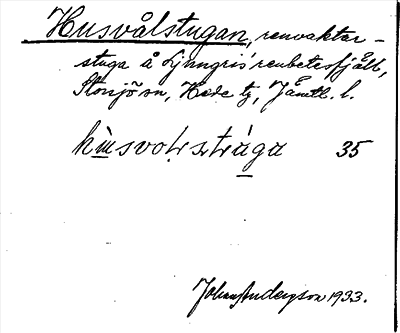 Husvålstugan, renvaktar-
stuga å Ljungris' renbetesfjäll,
Storsjö sn, Hede tg, Jämtl. l.
35
Johan Anderzson 1933.